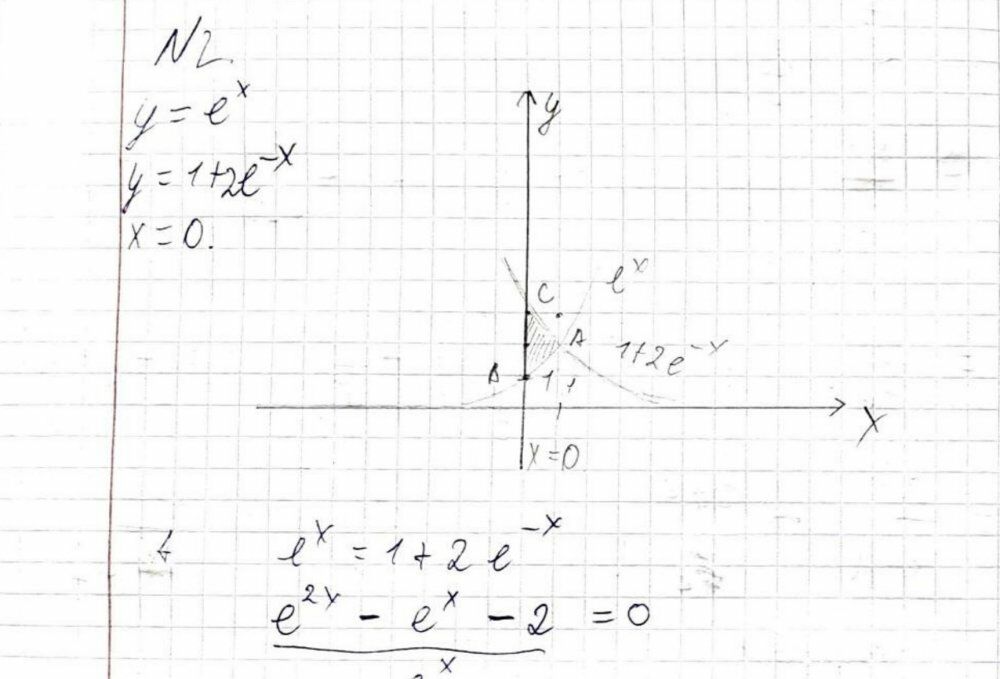 N2.
y = e^x
y = 1+2e^-x
x = 0.
y
C
e^x
A
1+2e^-x
1
x
x=0
e^x = 1+2 e^-x
e^2x - e^x - 2 = 0
e^x